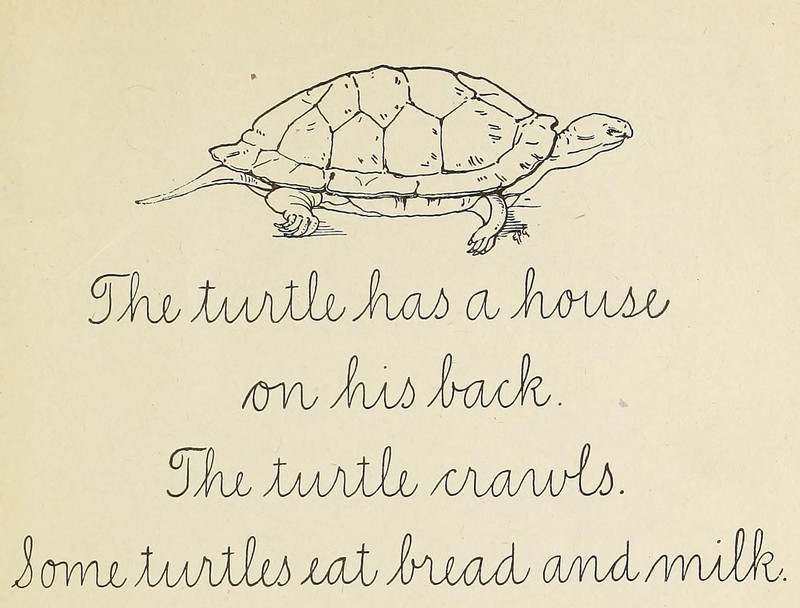 The turtle has a house
on his back.
The turtle crawls.
Some turtles eat bread and milk.